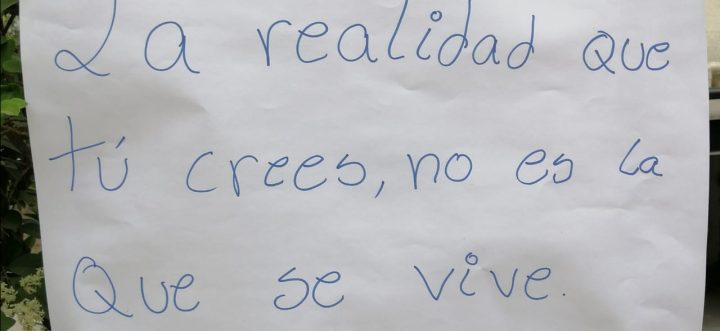 La realidad que
tú crees, no es la
que se vive.